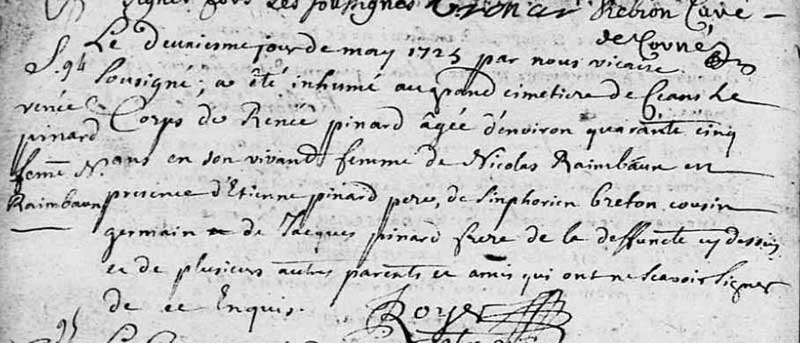 signer fors les soussignés Rebion Curé
de Corné
Le deuxiesme jour de may 1725 par nous vicaire
S. 94
renée
pinard
femme N.
Raimbaun
soussigné ; a été inhumé au grand cimetiere de Ceans Le
Corps de Renée pinard âgée d'environ quarante cinq
ans en son vivand femme de Nicolas Raimbaun en
presence d'Etienne pinard pere, de Sinphorien breton cousin
germain et de Jacques pinard frere de la deffuncte cy dessus
et de plusieurs autres parents et amis qui ont ne scavoir signer
de ce Enquis.
Royer
95